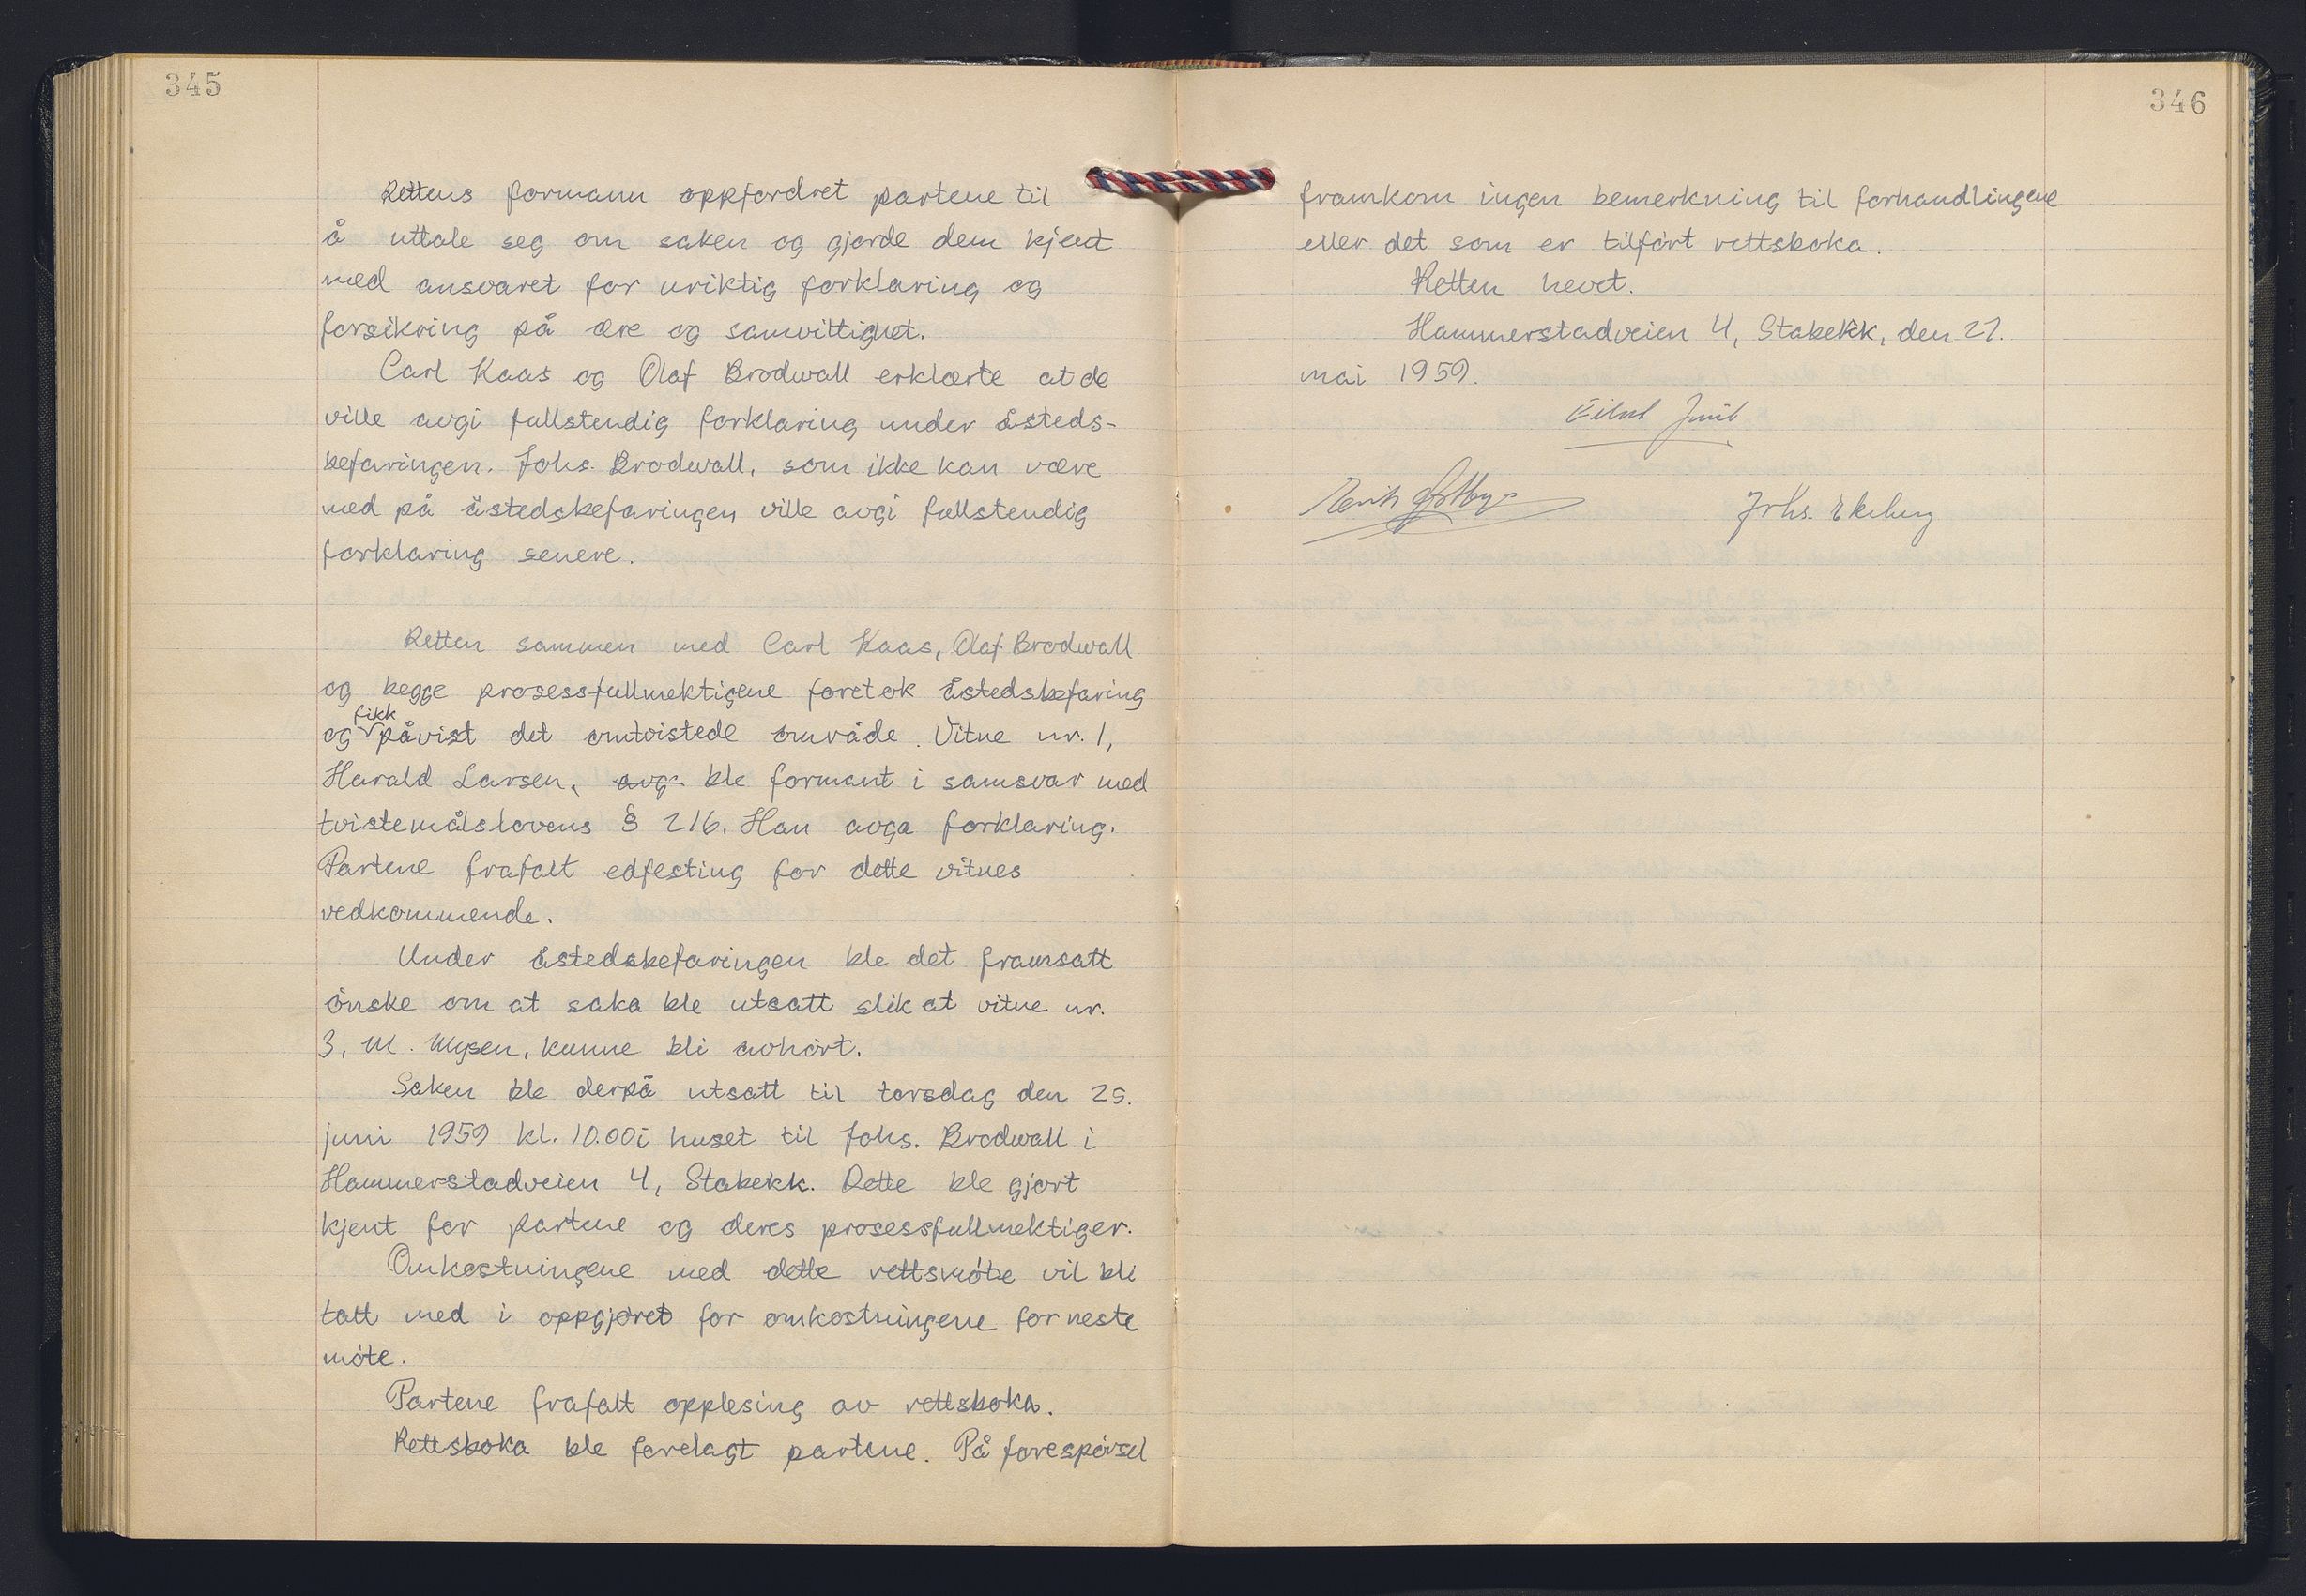 345
Rettens formann oppfordret partene til
å uttale seg om saken og gjorde dem kjent
med ansvaret for uriktig forklaring og
forsikring på ære og samvittighet.
Carl Kaas og Olaf Brodwall erklærte at de
ville avgi fullstendig forklaring under åsteds-
befaringen. Johs. Brodwall, som ikke kan være
med på åstedsbefaringen ville avgi fullstendig
forklaring senere.
Retten sammen med Carl Kaas, Olaf Brodwall
og begge prosessfullmektigene foretok åstedsbefaring
fikk
og påvist det omtvistede område. Vitne nr. 1,
Harald Larsen, avga ble formant i samsvar med
tvistemålslovens § 216. Han avga forklaring.
Partene frafalt edfesting for dette vitnes
vedkommende.
Under åstedsbefaringen ble det framsatt
ønske om at saka ble utsatt slik at vitne nr.
3, M. Mysen, kunne bli avhørt.
Saken ble derpå utsatt til torsdag den 25.
juni 1959 kl. 10.00 i huset til Johs. Brodwall i
Hammerstadveien 4, Stabekk. Dette ble gjort
kjent for partene og deres prosessfullmektiger.
Omkostningene med dette rettsmøte vil bli
tatt med i oppgjøret for omkostningene for neste
møte.
Partene frafalt opplesing av rettsboka.
Rettsboka ble forelagt partene. På forespørsel
346
framkom ingen bemerkning til forhandlingene
eller det som er tilført rettsboka.
Retten hevet.
Hammerstadveien 4, Stabekk, den 27.
mai 1959.
Johs. Ekeberg